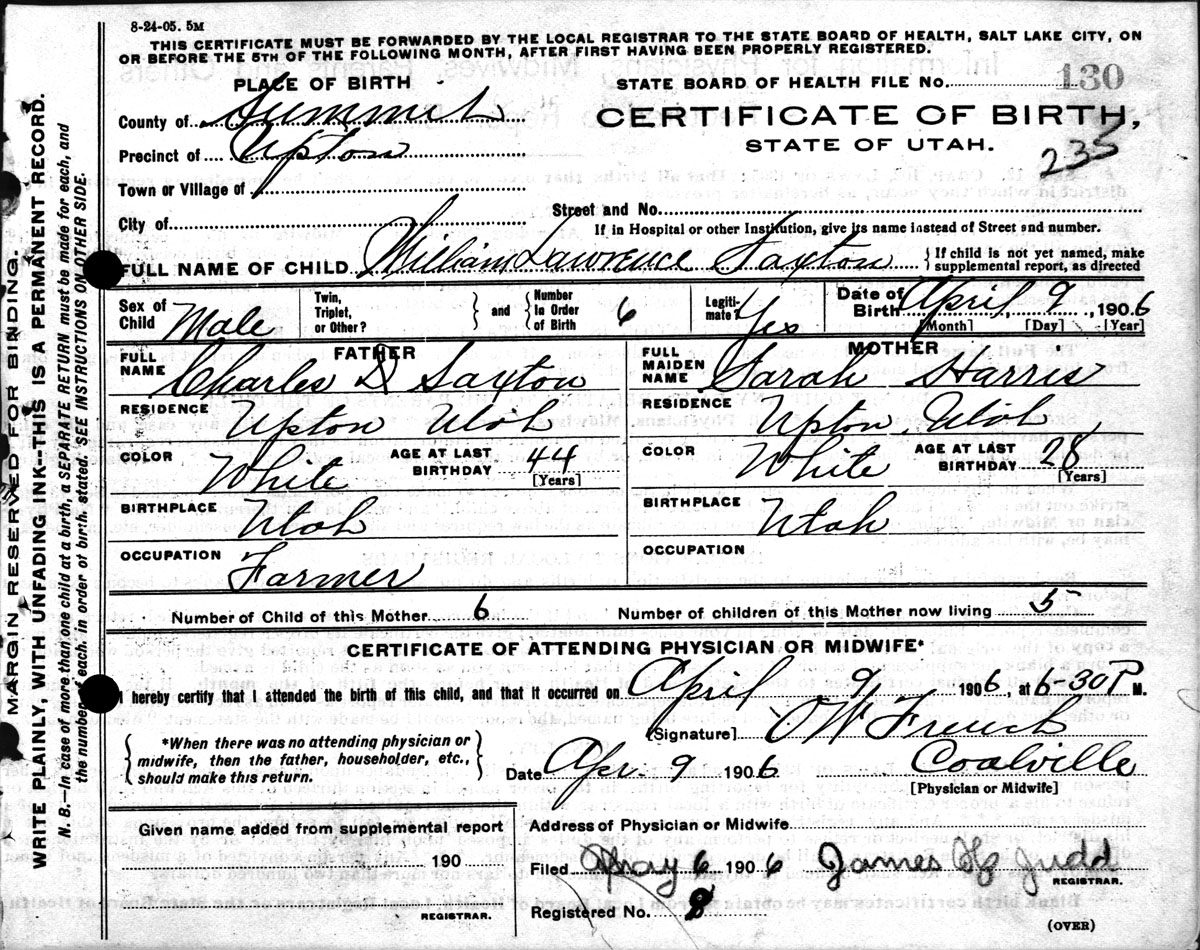 8-24-05. 5M
THIS CERTIFICATE MUST BE FORWARDED BY THE LOCAL REGISTRAR TO THE STATE BOARD OF HEALTH, SALT LAKE CITY, ON
OR BEFORE THE 5TH OF THE FOLLOWING MONTH, AFTER FIRST HAVING BEEN PROPERLY REGISTERED.
PLACE OF BIRTH
STATE BOARD OF HEALTH FILE NO. 130
County of Summit
CERTIFICATE OF BIRTH,
STATE OF UTAH.
235
Precinct of Upton
Town or Village of
Street and No.
City of
If in Hospital or other Institution, give its name instead of Street and number.
FULL NAME OF CHILD William Lawrence Saxton {If child is not yet named, make
supplemental report, as directed
Sex of
Child Male
Twin,
Triplet,
or Other?
} and {
Number
In Order
of Birth 6
Legiti-
mate? Yes
Date of
Birth April 9, 1906
[Month] [Day] [Year]
FATHER
FULL
NAME Charles D Saxton
RESIDENCE Upton Utah
COLOR White AGE AT LAST
BIRTHDAY 44
[Years]
BIRTHPLACE Utah
OCCUPATION Farmer
MOTHER
FULL
MAIDEN
NAME Sarah Harris
RESIDENCE Upton Utah
COLOR White AGE AT LAST
BIRTHDAY 28
[Years]
BIRTHPLACE Utah
OCCUPATION
Number of Child of this Mother 6 Number of children of this Mother now living 5
CERTIFICATE OF ATTENDING PHYSICIAN OR MIDWIFE*
I hereby certify that I attended the birth of this child, and that it occurred on April 9 1906, at 6-30 P M.
{*When there was no attending physician or
midwife, then the father, householder, etc.,
should make this return.}
[Signature] O W French
Date Apr. 9 1906 Coalville
[Physician or Midwife]
Given name added from supplemental report
190
REGISTRAR.
Address of Physician or Midwife
Filed May 6 1906 James H Judd
REGISTRAR.
Registered No. 8
(OVER)
MARGIN RESERVED FOR BINDING.
WRITE PLAINLY, WITH UNFADING INK--THIS IS A PERMANENT RECORD.
N. B.—In case of more than one child at a birth, a SEPARATE RETURN must be made for each, and
the number of each, in order of birth, stated. SEE INSTRUCTIONS ON OTHER SIDE.